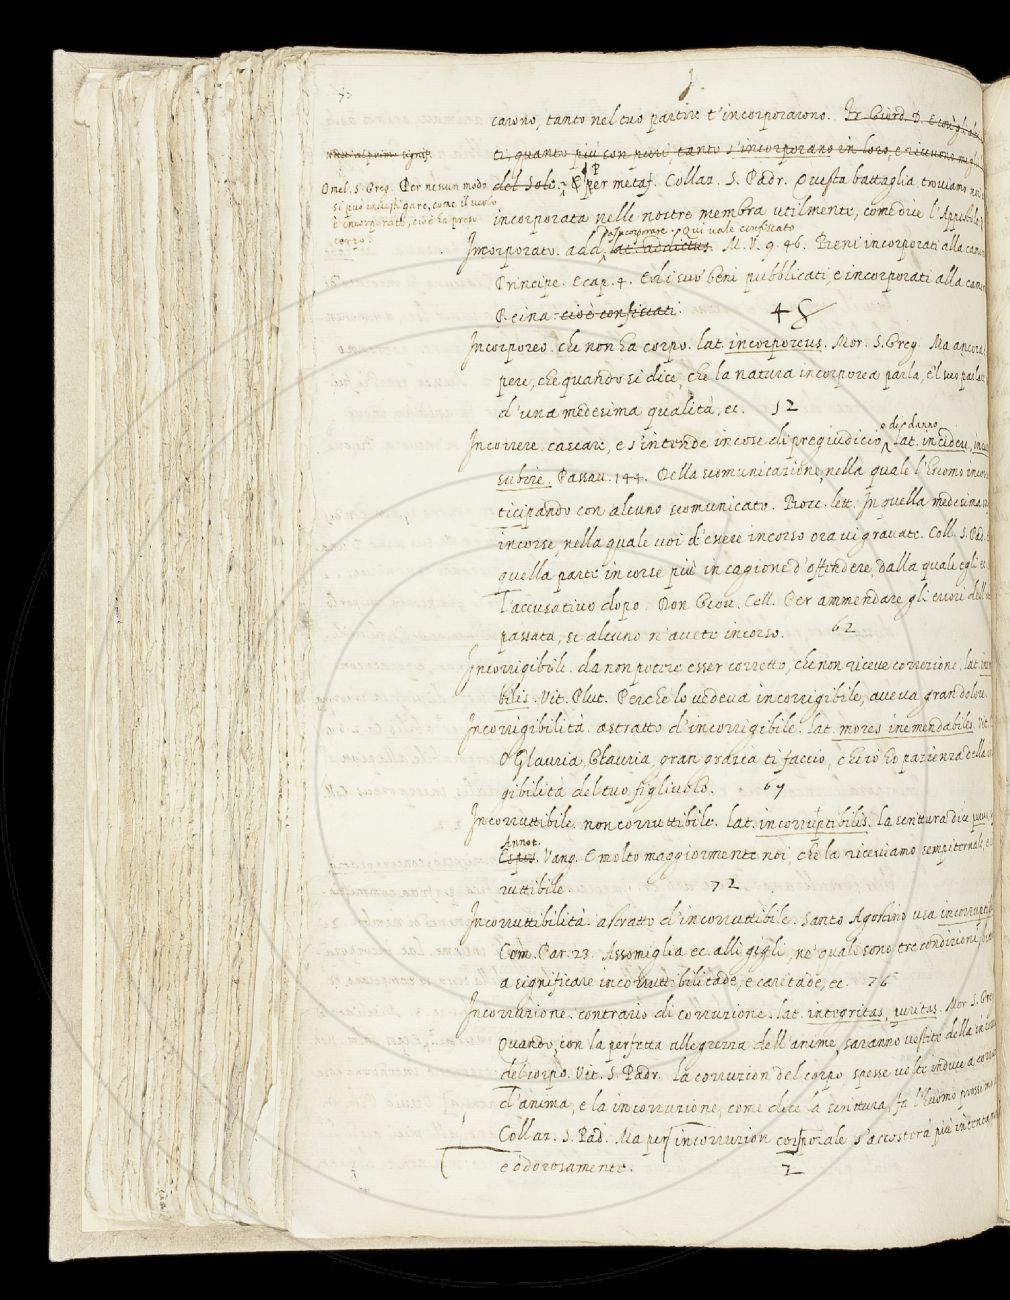 J.
carono, tanto nel tuo partire t'incorporarono. Fr. Giord. D. E conigli
ti, quanto più son puri tanto s'incorporano in loro, e ricevono
del Sole. E per metaf. Collaz. S. Padr. Questa battaglia troviamo noi
Omel. S. Greg. Per nessun modo
si può investigare, come il verbo
è incorporato, cioè ha preso
corpo.
incorporata nelle nostre membra utilmente, come dice l'Appostolo
da Incorporare. Qui vale confiscato
Incorporato. add. lat. addictus. M. V. 9. 46. Beni incorporati alla
Principe. E cap. 4. Ed i suo' beni pubblicati, e incorporati alla
Reina: cioè confiscati. 48
Incorporeo. che non ha corpo. lat. incorporeus. Mor. S. Greg. Ma ancora
pere, che quando si dice, che la natura incorporea parla, e'l suo parlar
d'una medesima qualità, ec. 52
o di danno
Incorrere. cascare, e s'intende in cose di pregiudicio, lat. incidere,
subire. Passav. 144. Della scomunicazione, nella quale l'huomo
ticipando con alcuno scomunicato. Bocc. lett. In quella medesima
incorse, nella quale voi d'essere incorso ora vi gravate. Coll. S. Pad.
quella parte incorse più in cagione d'offendere, dalla quale egli
l'accusativo dopo. Don Giov. Cell. Per ammendare gli errori
passata, se alcuno n'avete incorso. 62
Incorrigibile. da non potere esser corretto, che non riceve correzione. lat.
bilis. Vit. Plut. Perche lo vedeva incorrigibile, aveva gran dolore.
Incorrigibilità. astratto d'incorrigibile. lat. mores inemendabiles. Vit.
O Glauria, Glauria, gran grazia ti faccio, ch'io ho pazienza della
gibilità del tuo figliuolo. 67
Incorruttibile. non corruttibile. lat. incorruptibilis. la scrittura dice,
Annot.
Espos. Vang. E molto maggiormente noi, che la riceviamo sempiternale,
ruttibile. 72
Incorruttibilità. astratto d'incorruttibile. Santo Agostino usa
Com. Par. 23. Assomiglia ec. alli gigli, ne' quali sono tre condizioni
a significare incorruttibilitade, e caritade, ec. 76
Incorruzione. contrario di corruzione. lat. integritas, puritas. Mor. S. Greg.
Quando, con la perfetta allegrezza dell'anime, saranno vestite della
del corpo. Vit. S. Padr. La corruzion del corpo, spesse volte induce a
d'anima, e la incorruzione, come dice la scrittura, fa l'huomo prossimo
Collaz. S. Pad. Ma per incorruzion corporale s'accosterà più
e odorosamente. 2